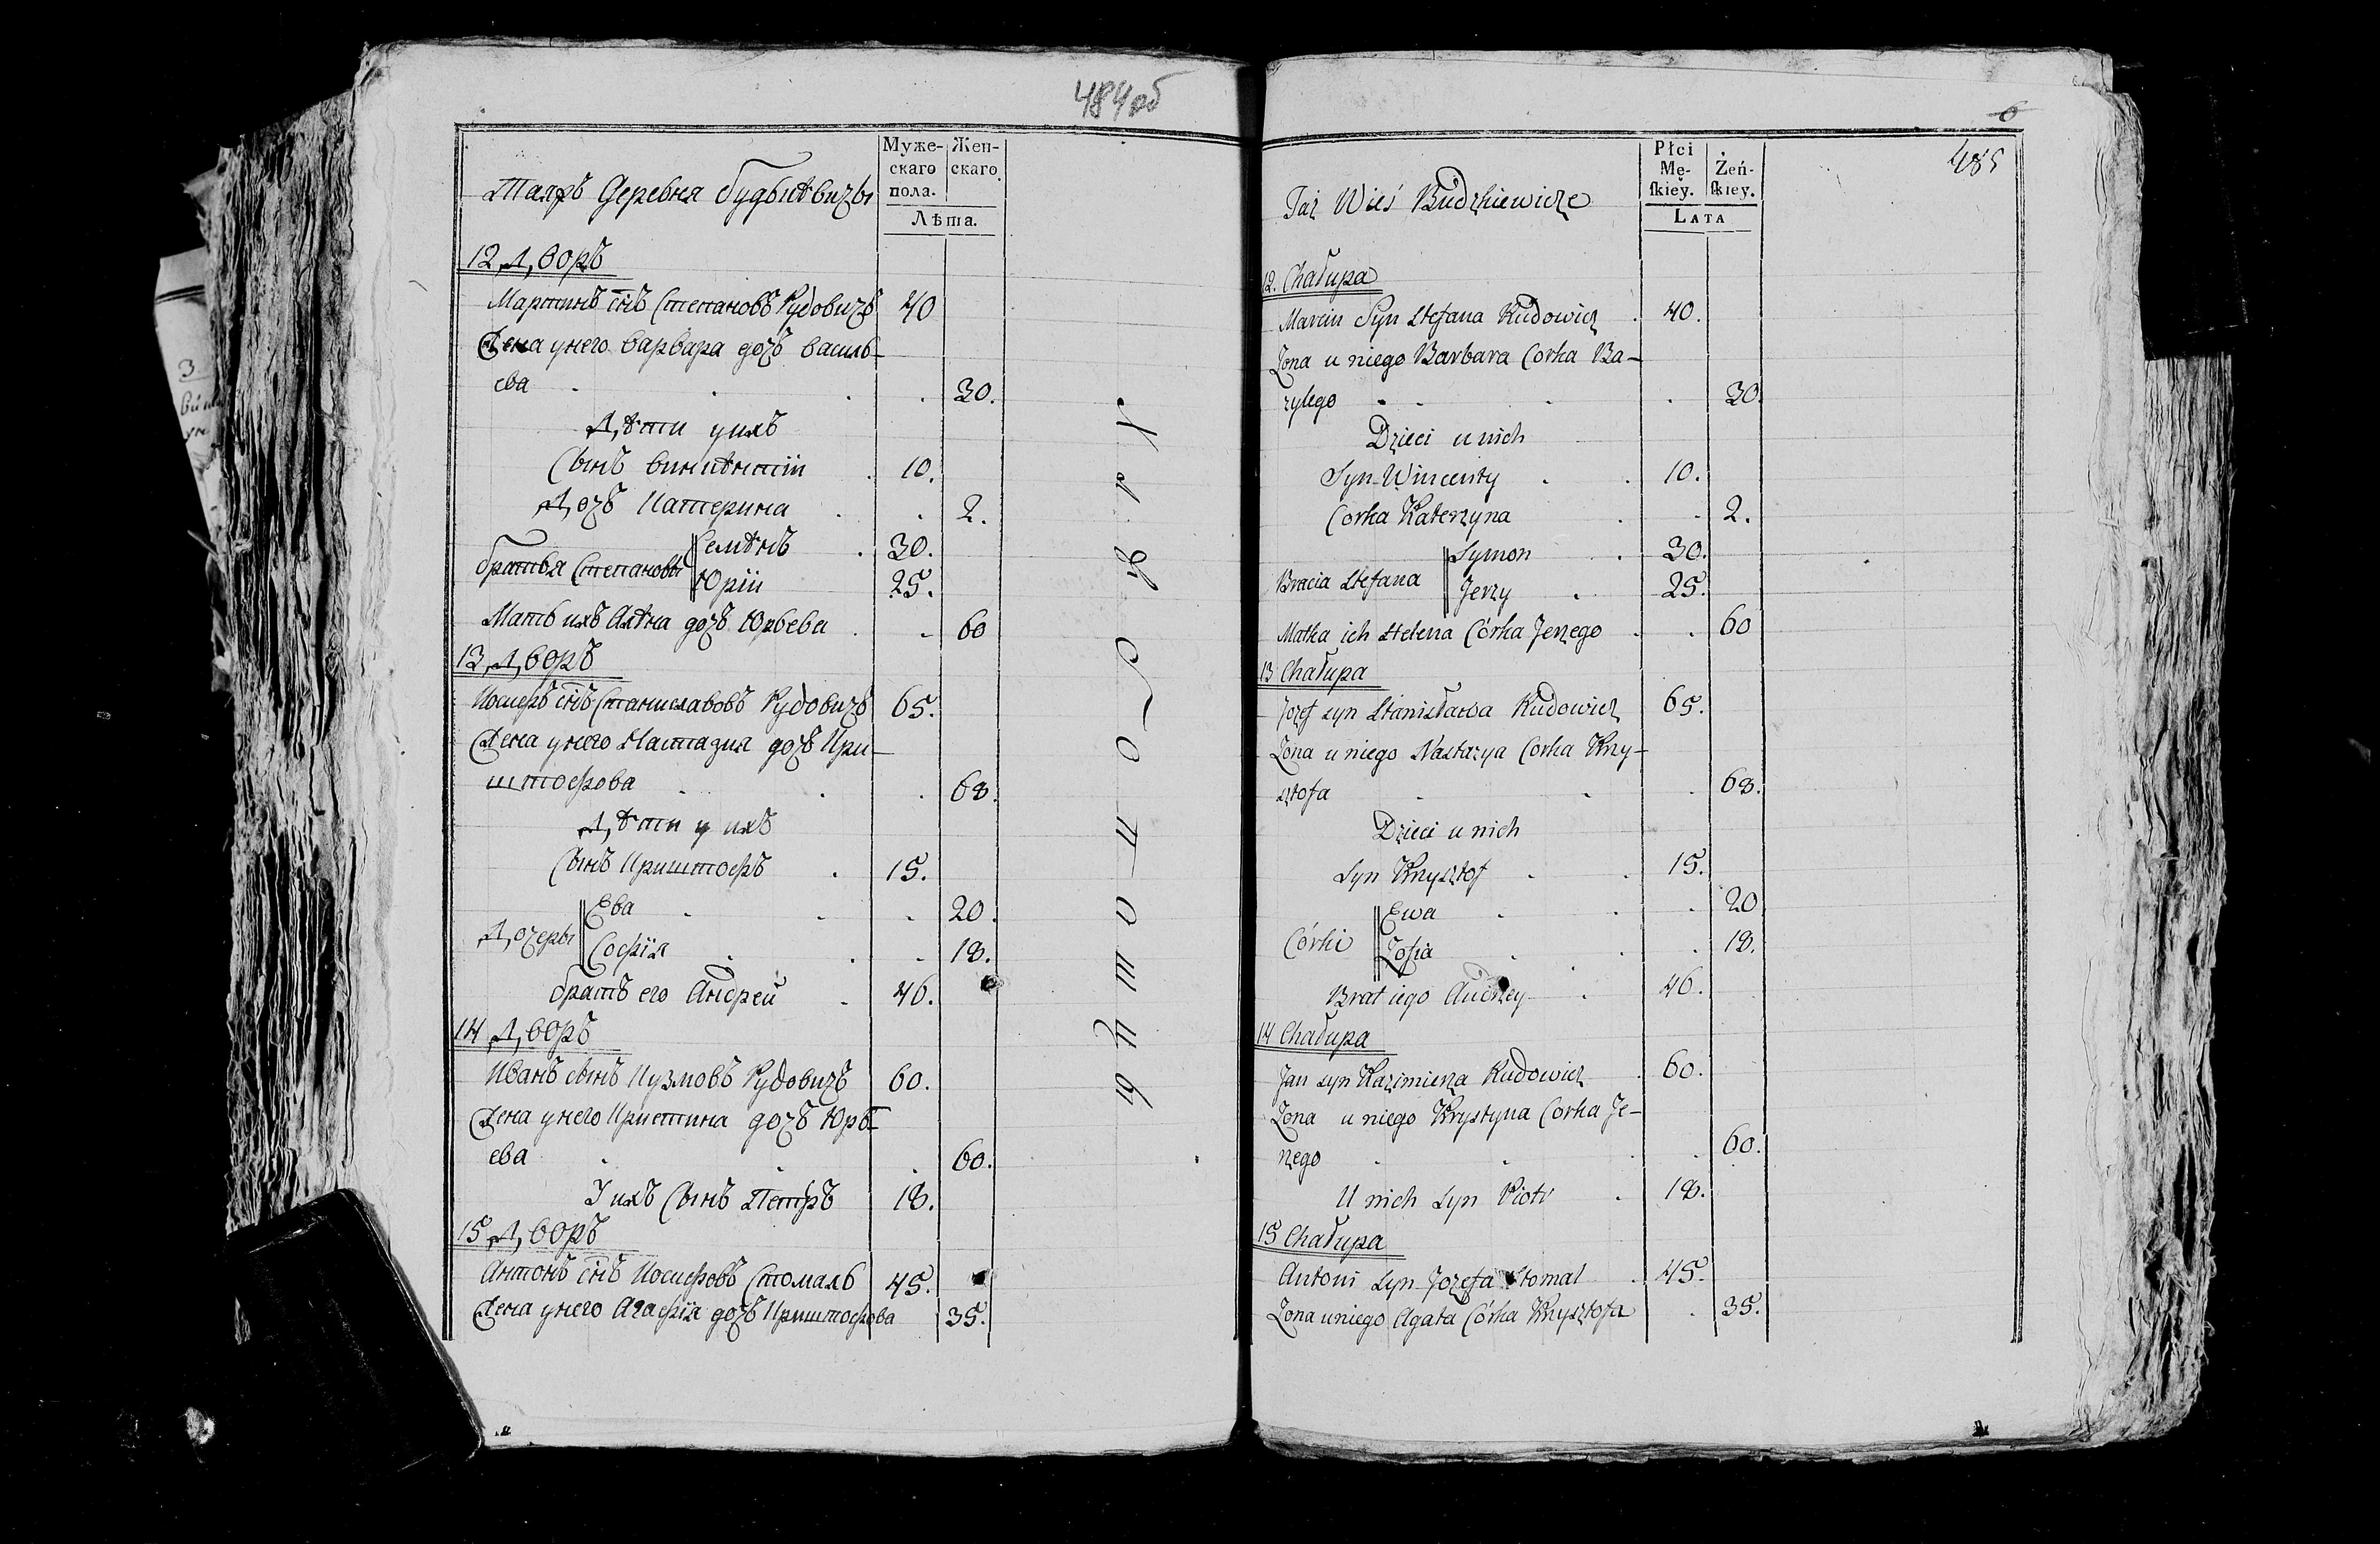 484об
Муже-
скаго
пола.
Жен-
скаго.
Лѣта.
Таяжъ Деревня Будзкѣвичы
12 Дворъ
Мартинъ снъ Степановъ Кудовичъ 40
Жена унего Варвара дочъ Василь-
ева 30.
Дѣти унихъ
Сынъ Винцѣнтій 10.
Дочъ Катерина 2.
Братья Степановы Семѣнъ 30.
Юрій 25.
Мать ихъ Алѣна дочъ Юрьева 60
13 Дворъ
Иосифъ снъ Станиславовъ Кудовичъ 65.
Жена унего Настазия дочъ Кри-
штофова 68.
Дѣти у ихъ
Сынъ Криштофъ 15.
Дочеры Ева 20.
Софія 18.
Братъ его Андрей 46.
14 Дворъ
Иванъ сынъ Кузмовъ Кудовичъ 60.
Жена унего Кристина дочъ Юрь-
ева 60.
У ихъ Сынъ Петръ 18.
15 Дворъ
Антонъ снъ Иосифовъ Стомаль 45.
Жена унего Агафія дочъ Криштофова 35.
6
485
Płci
Mę-
ſkiey.
Żeń-
ſkiey.
LATA
Taż Wieś Budzkiewicze
12. Chałupa
Marcin Syn Stefana Kudowicz 40.
Zona u niego Barbara Corka Ba-
zylego 30.
Dzieci u nich
Syn Wincenty 10.
Corka Katerzyna 2.
Bracia Stefana Symon 30.
Jerzy 25.
Matka ich Helena Córka Jerzego 60
13 Chałupa
Jozef syn Stanisława Kudowicz 65.
Zona u niego Nastazya Corka Krzy-
sztofa 68.
Dzieci u nich
Syn Krzysztof 15.
Córki Ewa 20
Zofia 18.
Brat iego Andrzey 46.
14 Chałupa
Jan syn Kazimierza Kudowicz 60.
Zona u niego Krystyna Corka Je-
rzego 60.
U nich Syn Piotr 18.
15 Chałupa
Antoni Syn Jozefa Stomal 45.
Zona uniego Agata Córka Krzysztofa 35.